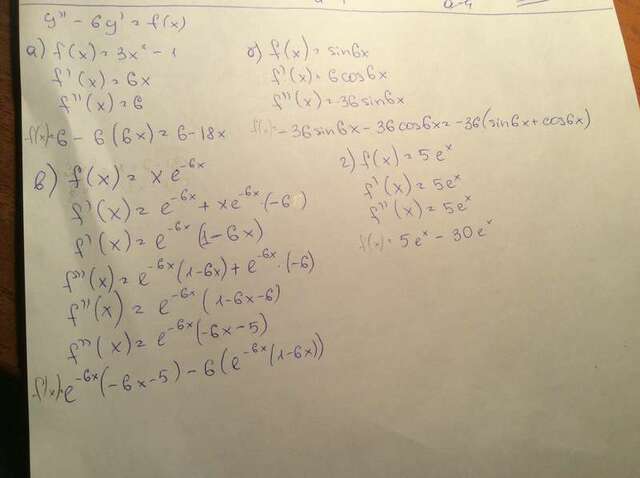 y'' - 6y' = f(x)
а) f(x) = 3x² - 1
f'(x) = 6x
f''(x) = 6
f(x) = 6 - 6(6x) = 6 - 18x
б) f(x) = sin6x
f'(x) = 6cos6x
f''(x) = -36sin6x
f(x) = -36sin6x - 36cos6x = -36(sin6x + cos6x)
в) f(x) = xe^{-6x}
f'(x) = e^{-6x} + xe^{-6x}·(-6)
f'(x) = e^{-6x}(1-6x)
f''(x) = e^{-6x}(1-6x) + e^{-6x}·(-6)
f''(x) = e^{-6x}(1-6x-6)
f''(x) = e^{-6x}(-6x-5)
f(x) = e^{-6x}(-6x-5) - 6(e^{-6x}(1-6x))
г) f(x) = 5e^x
f'(x) = 5e^x
f''(x) = 5e^x
f(x) = 5e^x - 30e^x